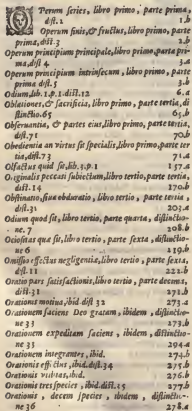 Operum series, libro primo, parte prima,
dist.1 1.b
Operum finis, & fructus, libro primo, parte
prima, dist.3 2.b
Operum principium principale, libro primo, parte pri-
ma, dist 4 3.a
Operum principium intrinsecum, libro primo, parte
prima dist.5
Odium, lib. 1.p.1.dist.12 6.a
Oblationes, & sacrificia, libro primo, parte tertia, di
stinctio.65 65.b
Obseruantia, & partes eius, libro primo, parte tertia,
dist.71 70.b
Obedientia an virtus sit specialis, libro primo, parte ter
tia, dist.73 71.a
Olfactus quid sit, lib.1.p.1 157.a
Originalis peccati subiectum, libro tertio, parte tertia,
dist.14 170.b
Obstinatio, siue obduratio, libro tertio, parte tertia,
dist.31 203.a
Odium quod sit, libro tertio, parte quarta, distinctio-
ne.7 208.b
Ociositas quæ sit, libro tertio, parte sexta, distinctio-
ne 6 219.b
Omissio effectus negligentiæ, libro tertio, parte sexta,
dist.11 222.b
Oratio pars satisfactionis, libro tertio, parte decima,
dist.31 272.b
Orationis motiua, ibid dist 32 273.a
Orationem faciens Deo gratam, ibidem, distinctio-
ne 33 173.b
Orationem expeditam faciens, ibidem, distinctio-
ne 35 294.a
Orationem integrantes, ibid. 274.b
Orationis efficiens, ibid.dist.34 275.b
Orationis vtilitas, ibid. 276.b
Orationis tres species, ibid.dist.15 277.b
Orationis, decem species, ibidem, distinctio-
ne 36 278.a